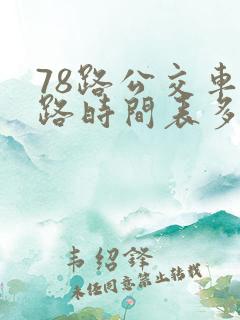 78路公交車
路時間表多
韦绍锋
未经同意禁止转载